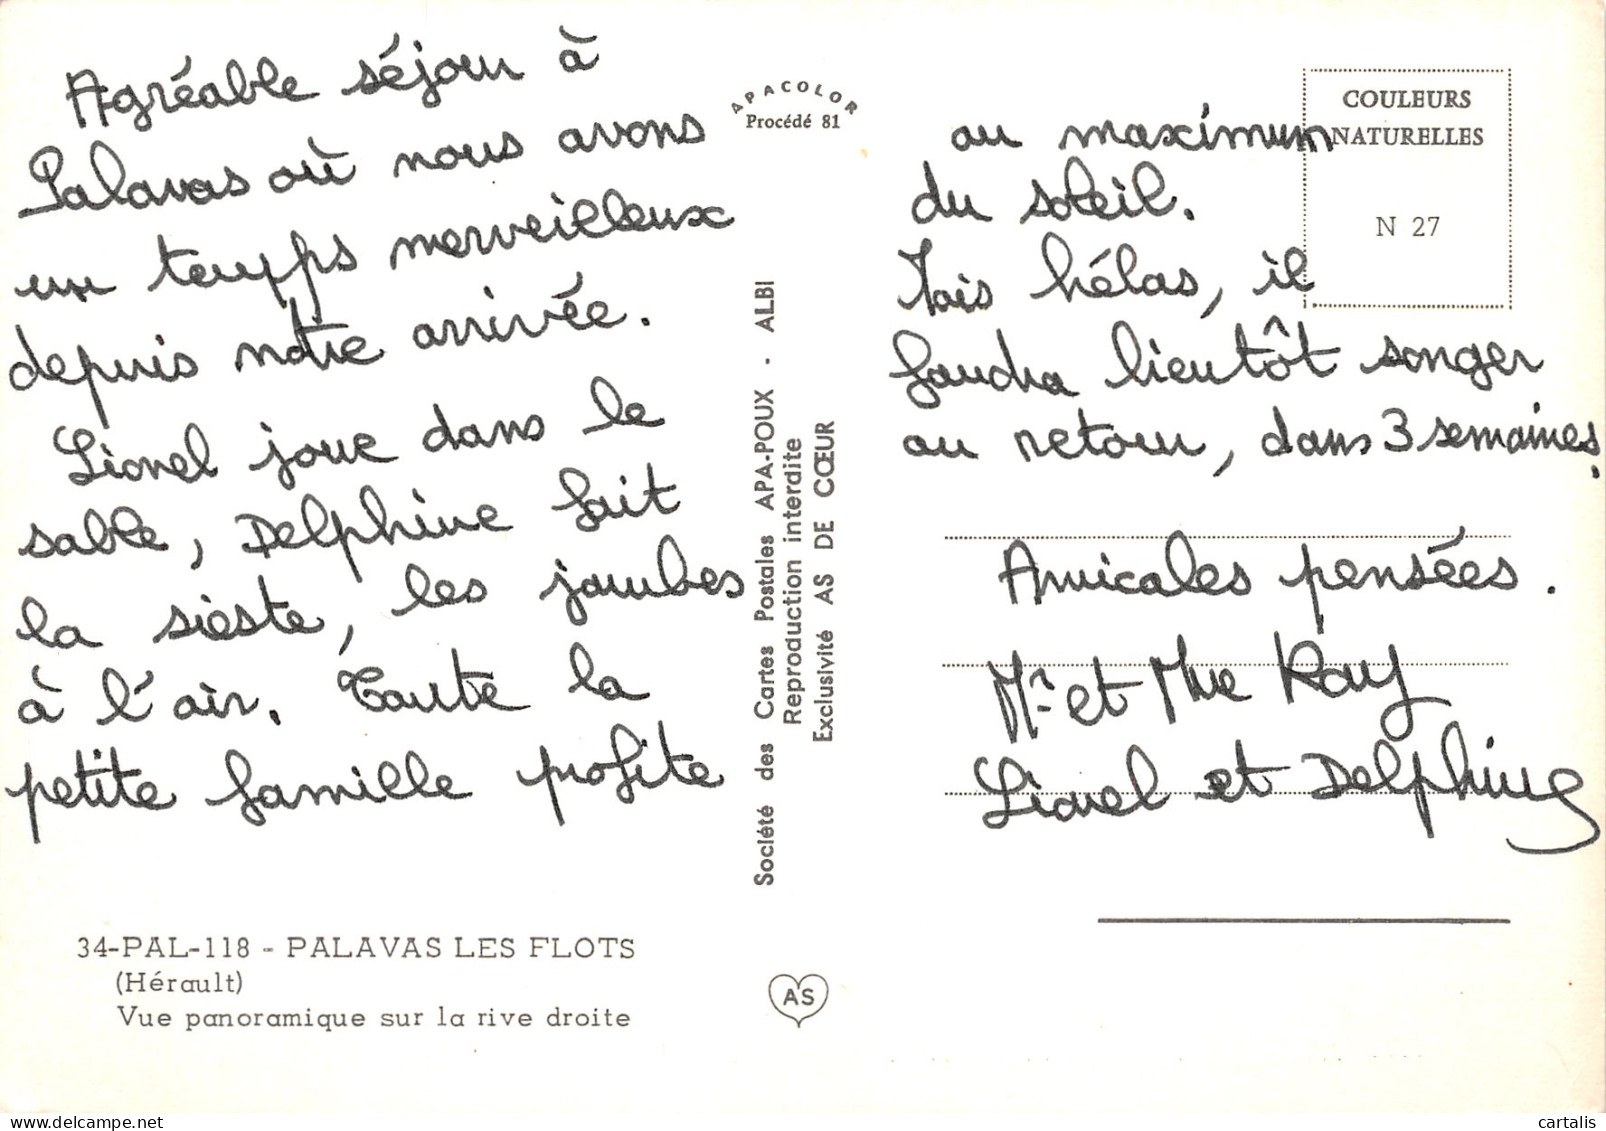 Agréable séjour à
Palavas où nous avons
un temps merveilleux
depuis notre arrivée.
Lionel joue dans le
sable, Delphine fait
la sieste, les jambes
à l'air. Toute la
petite famille profite
34-PAL-118 - PALAVAS LES FLOTS
(Hérault)
Vue panoramique sur la rive droite
APACOLOR
Procédé 81
Société des Cartes Postales APA-POUX - ALBI
Reproduction interdite
Exclusivité AS DE CŒUR
AS
COULEURS
NATURELLES
N 27
au maximum
du soleil.
Mais hélas, il
faudra bientôt songer
au retour, dans 3 semaines.
Amicales pensées.
Mr et Mme Ray
Lionel et Delphine
cartalis